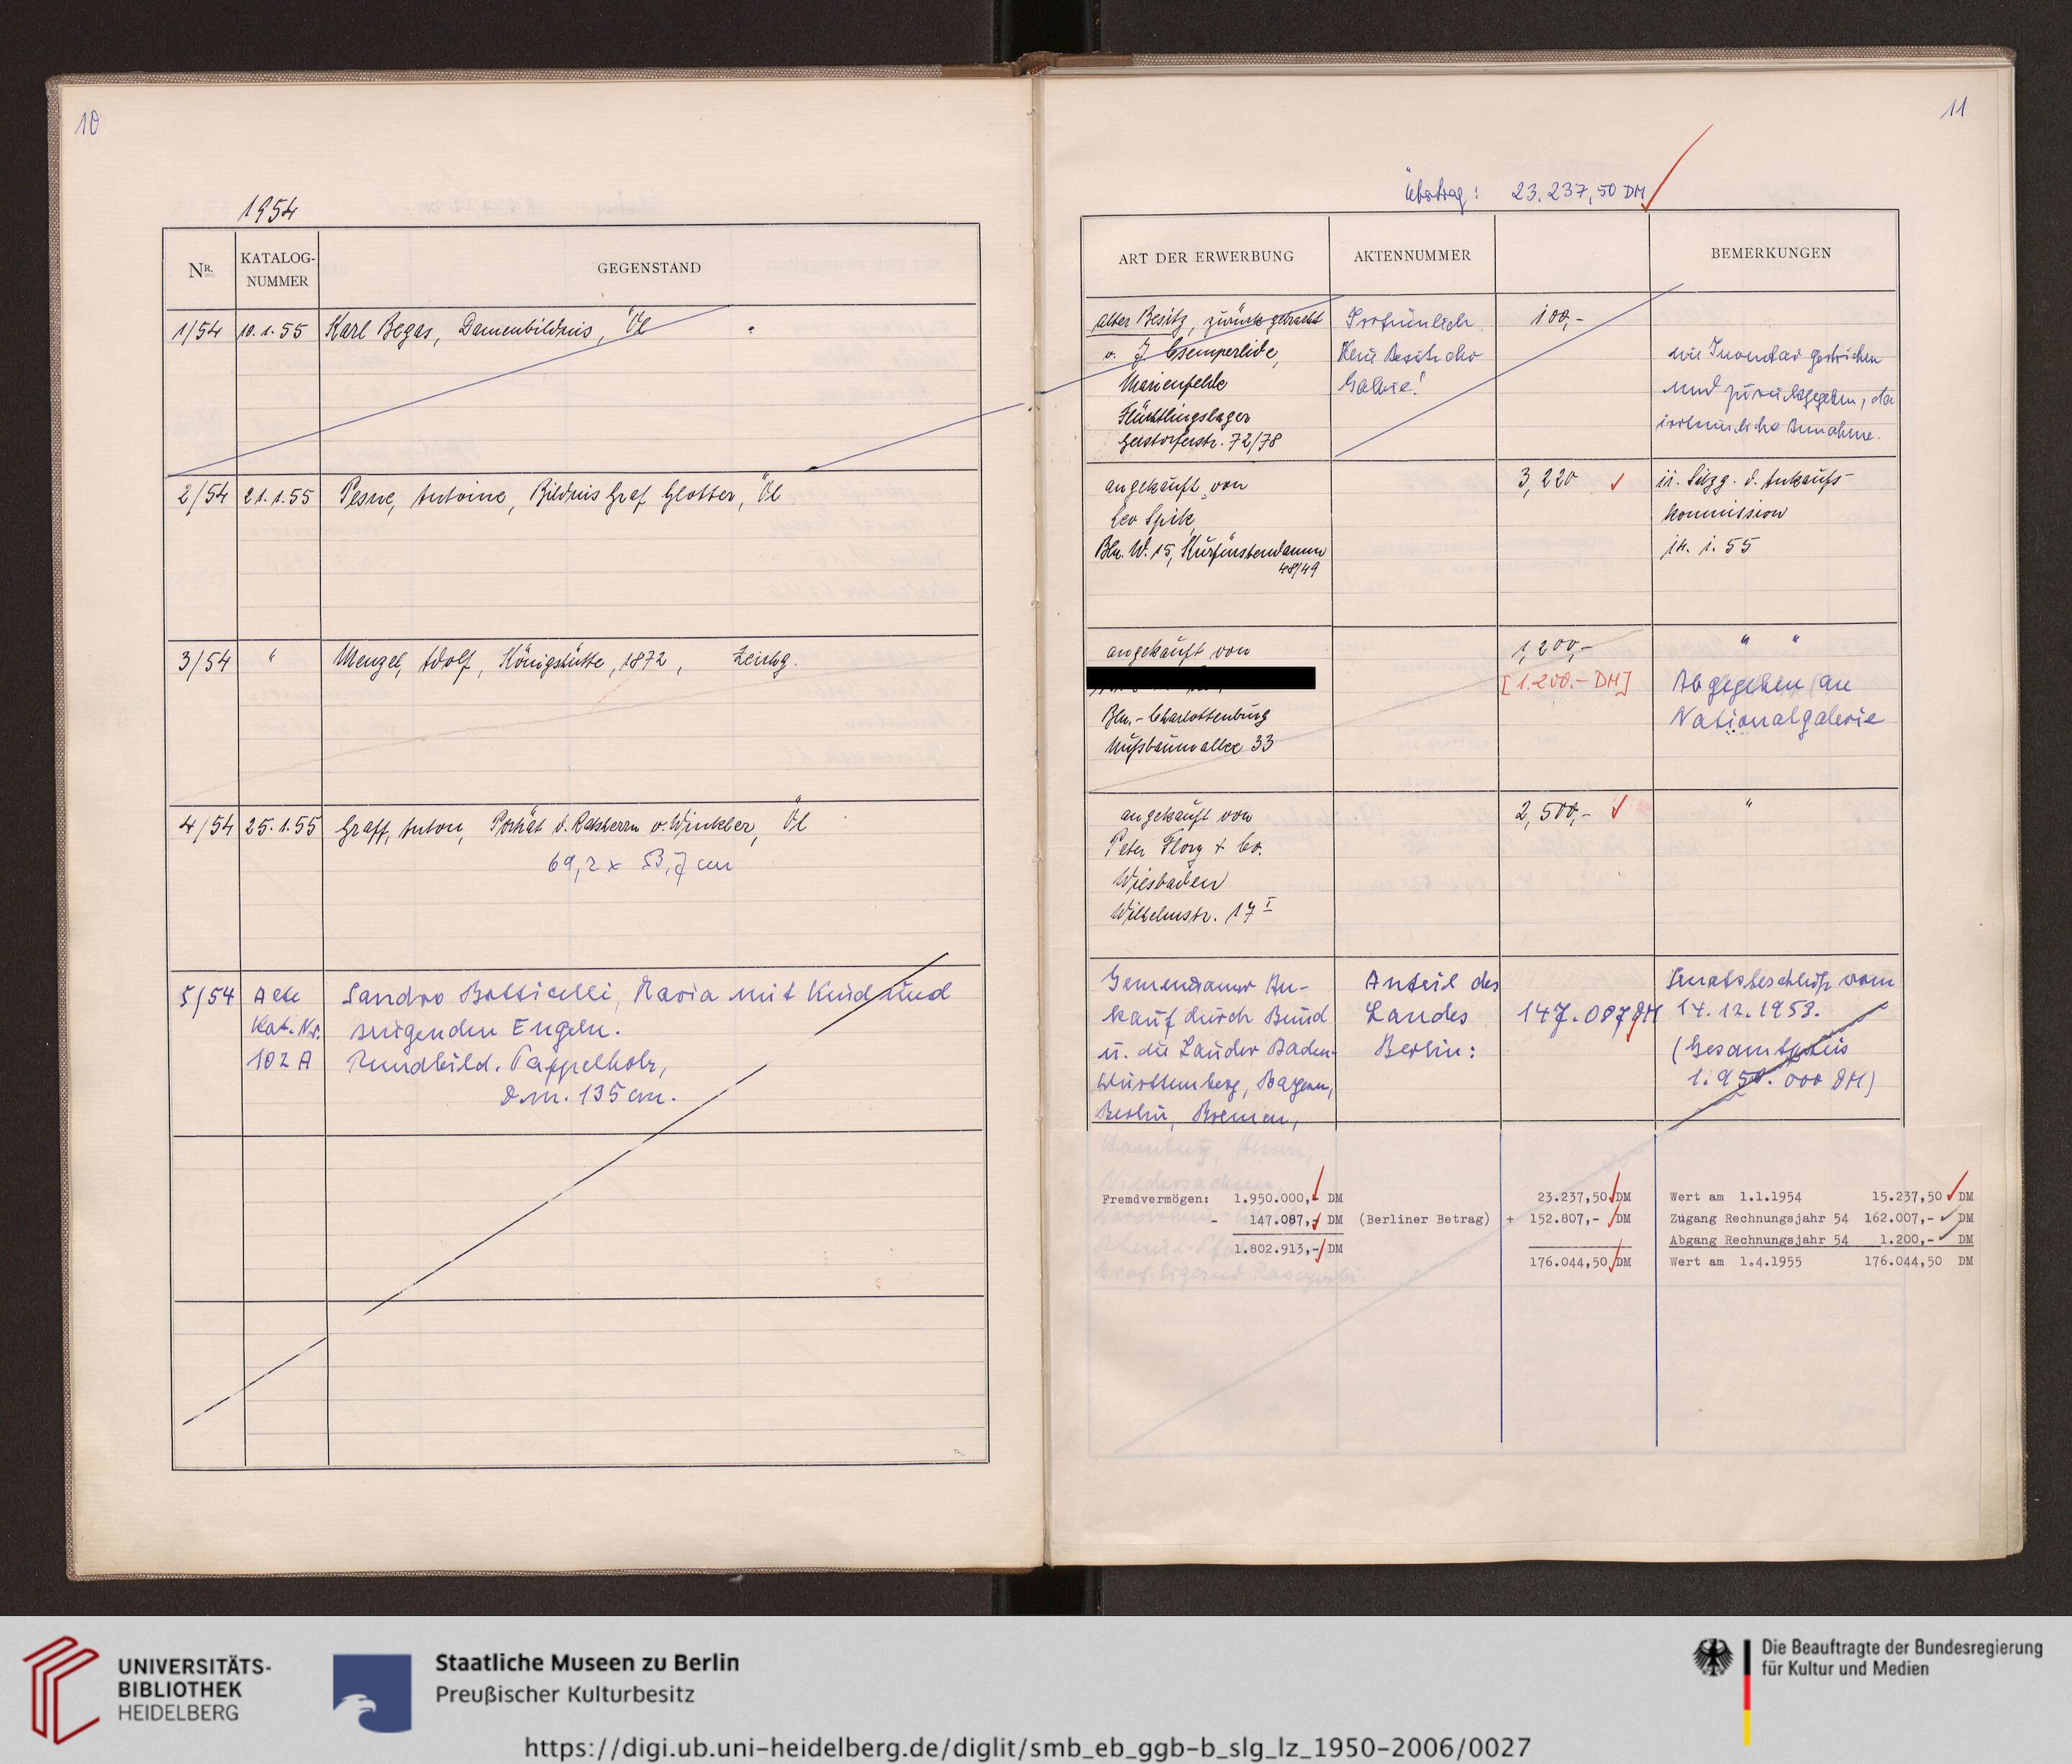 10
1954
NR.
KATALOG-
NUMMER
GEGENSTAND
1/54 10.1.55 Karl Begas, Damenbildnis, Öl
2/54 21.1.55 Pesne, Antoine, Bildnis Graf Glotter, Öl
3/54 " Menzel, Adolf, Königshütte, 1872, Zeichg.
4/54 25.1.55 Graff, Anton, Porträt d. Ratsherrn v. Winkler, Öl
69,2 x 53,7 cm
5/54 Alte Sandro Botticelli, Maria mit Kind und
Kat. Nr. singenden Engeln.
102 A Rundbild. Pappelholz,
Dm. 135 cm.
11
Übertrag: 23.237,50 DM
ART DER ERWERBUNG
AKTENNUMMER
BEMERKUNGEN
alter Besitz, zurückgebracht
v. J.
Marienfelde
Flüchtlingslager
72/78
Irrtümlich
Kein Besitz der
Galerie!
100,-
im Inventar gestrichen
und zurückgegeben, da
irrtümliche Annahme.
angekauft von
Leo Spik,
Bln. W. 15, Kurfürstendamm
48/49
3,220
lt. Sitzg. d. Ankaufs-
kommission
14. 1. 55
angekauft von
Bln.-Charlottenburg
Nußbaumallee 33
1,200,-
[1.200.- DM]
" "
Abgegeben an
Nationalgalerie
angekauft von
Peter Flory + Co.
Wiesbaden
Wilhelmstr. 17 I
2,500,-
"
Gemeinsamer An-
kauf durch Bund
u. die Länder Baden-
Württemberg, Bayern,
Berlin, Bremen,
Anteil des
Landes
Berlin:
147.087 DM
Senatsbeschluß vom
14.12.1953.
(Gesamtpreis
1.950.000 DM)
Hamburg, Hessen,
Niedersachsen,
Fremdvermögen: 1.950.000,- DM
- 147.087,- DM (Berliner Betrag)
1.802.913,- DM
23.237,50 DM
+ 152.807,- DM
176.044,50 DM
Wert am 1.1.1954 15.237,50 DM
Zugang Rechnungsjahr 54 162.007,- DM
Abgang Rechnungsjahr 54 1.200,- DM
Wert am 1.4.1955 176.044,50 DM
UNIVERSITÄTS-
BIBLIOTHEK
HEIDELBERG
Staatliche Museen zu Berlin
Preußischer Kulturbesitz
Die Beauftragte der Bundesregierung
für Kultur und Medien
https://digi.ub.uni-heidelberg.de/diglit/smb_eb_ggb-b_slg_lz_1950-2006/0027